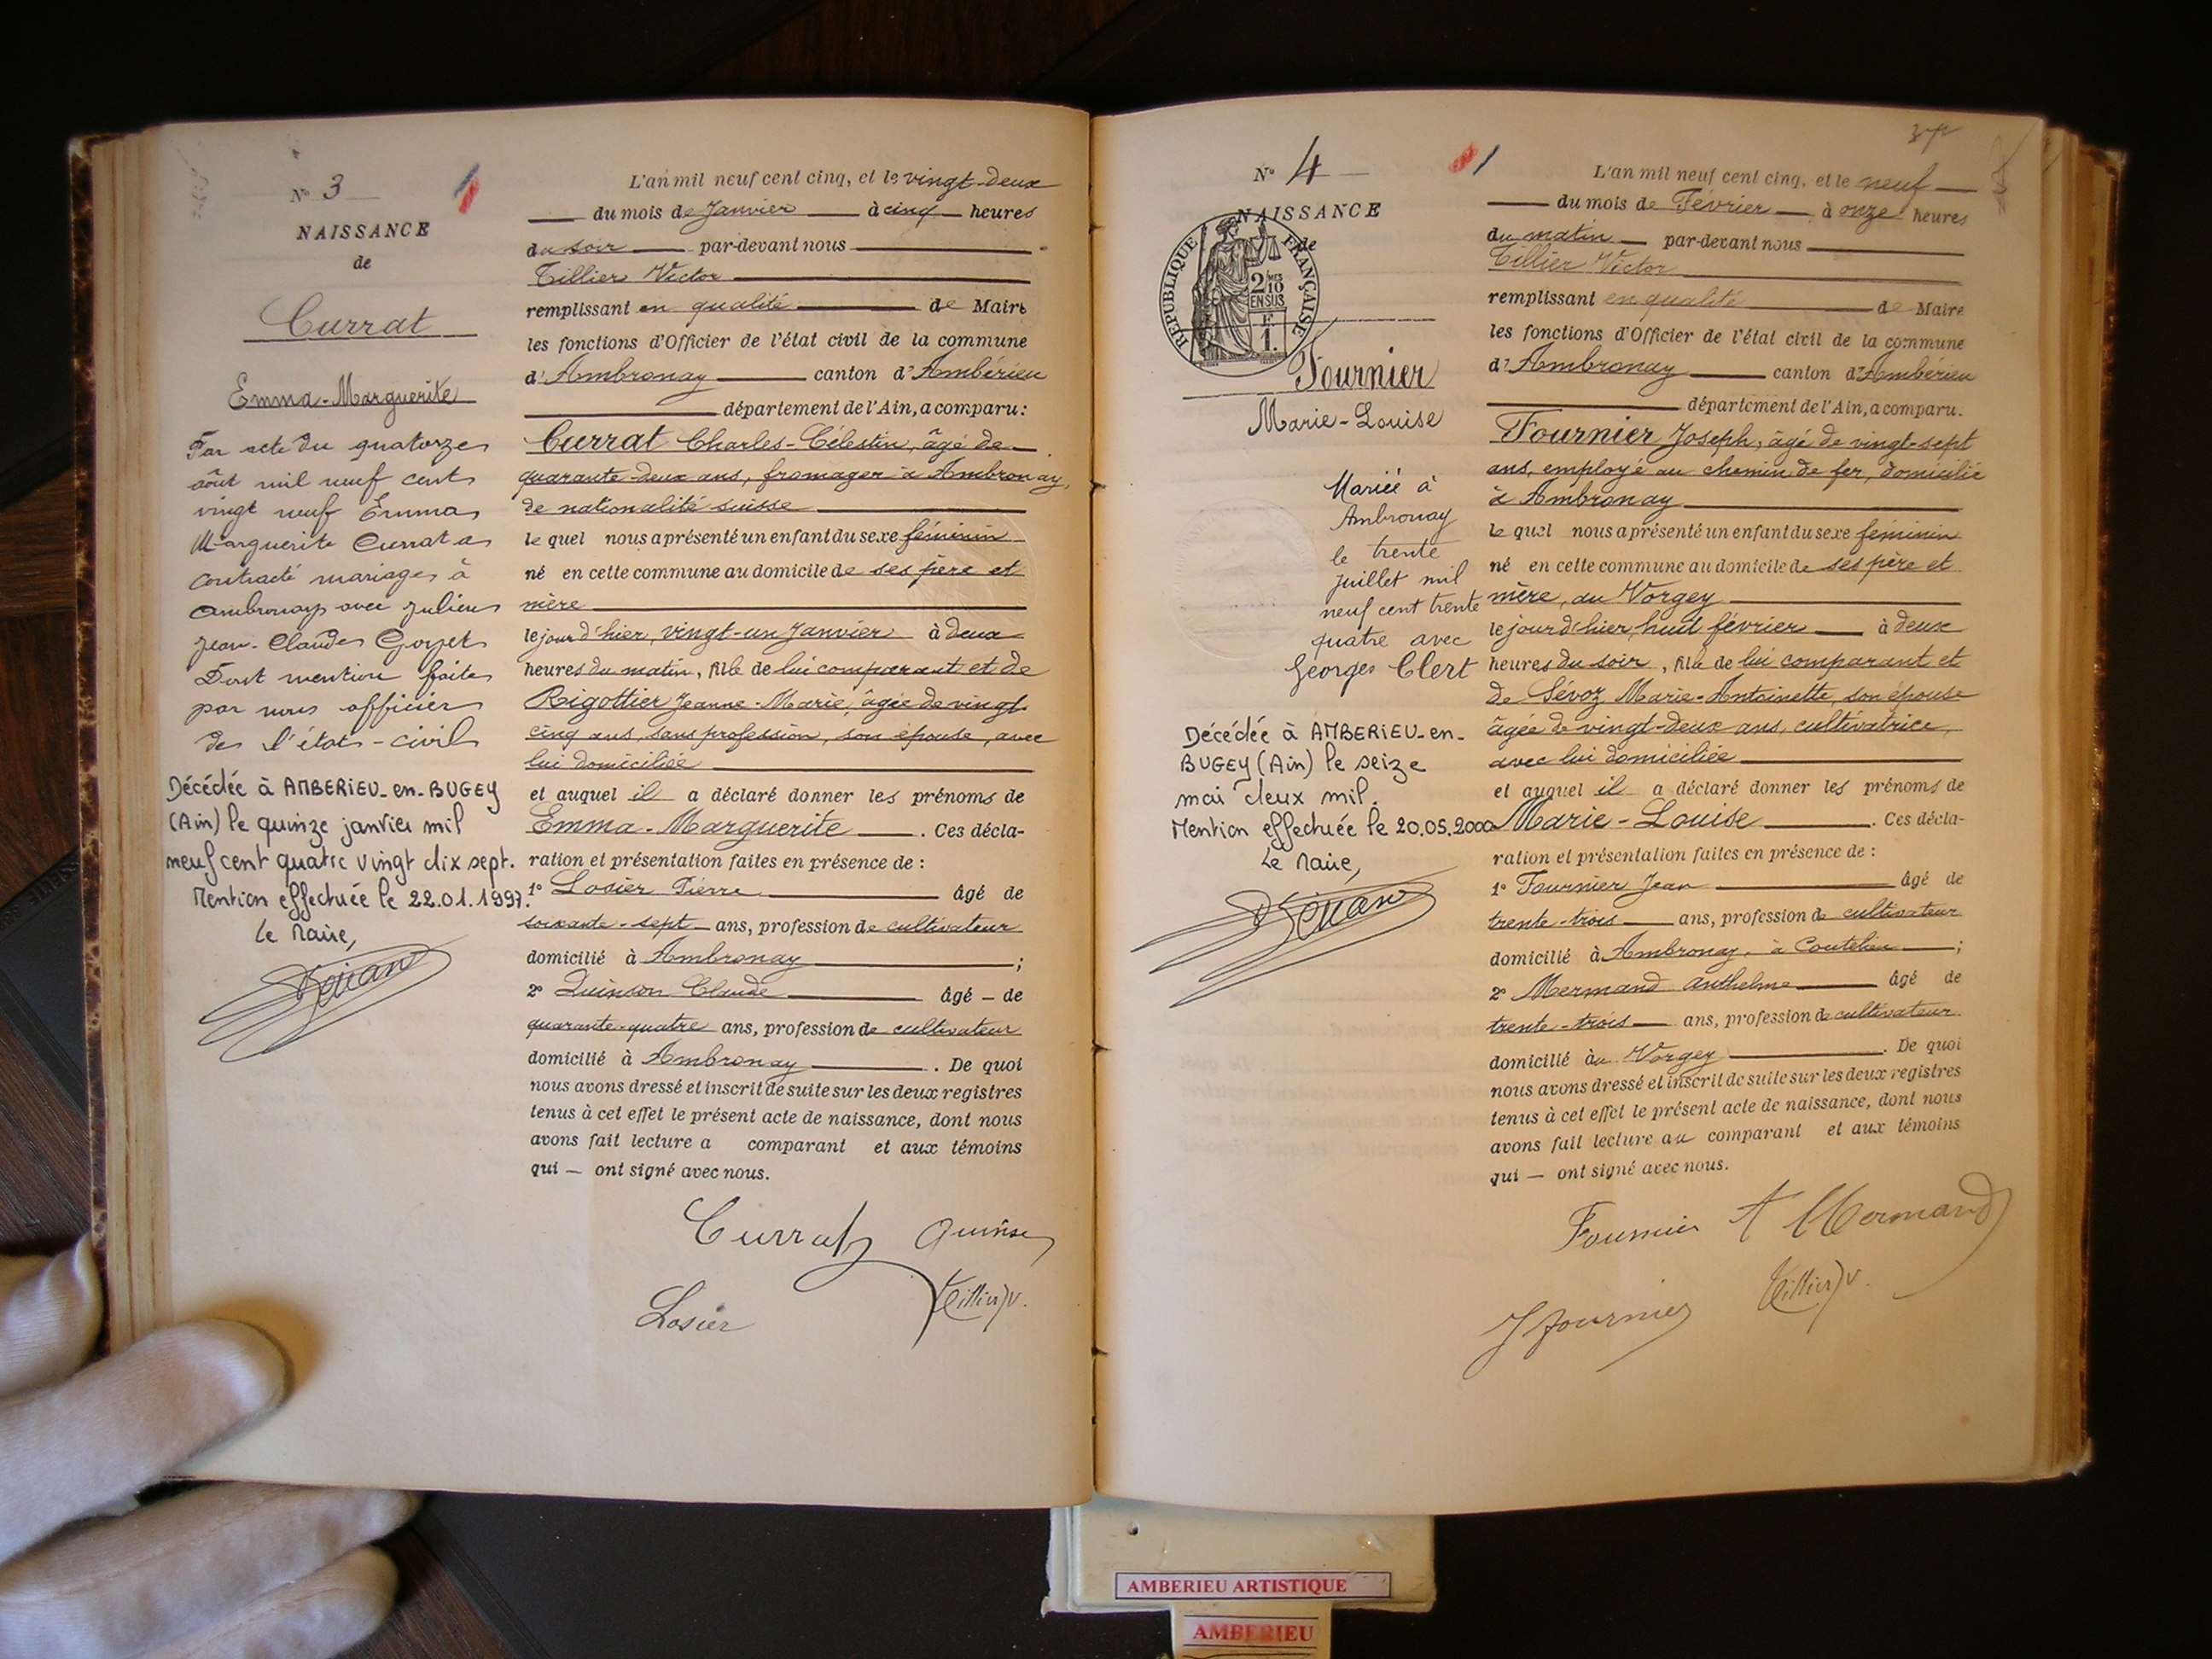 N° 3
NAISSANCE
de
Currat
Emma-Marguerite
Par acte du quatorze
août mil neuf cent
vingt neuf Emma
Marguerite Currat a
contracté mariage à
Ambronay avec Julien
Jean-Claude Goyet
Dont mention faite
par nous officier
de l'état-civil
Décédée à AMBERIEU-en-BUGEY
(Ain) le quinze janvier mil
neuf cent quatre vingt dix sept.
Mention effectuée le 22.01.1997.
Le Maire,
L'an mil neuf cent cinq, et le vingt-deux
du mois de Janvier à cinq heures
du soir par-devant nous
Tillier Victor
remplissant en qualité de Maire
les fonctions d'Officier de l'état civil de la commune
d'Ambronay canton d'Ambérieu
département de l'Ain, a comparu:
Currat Charles-Célestin, âgé de
quarante-deux ans, fromager à Ambronay,
de nationalité suisse
le quel nous a présenté un enfant du sexe féminin
né en cette commune au domicile de ses père et
mère
le jour d'hier, vingt-un Janvier à deux
heures du matin, fille de lui comparant et de
Rigottier Jeanne-Marie, âgée de vingt
cinq ans, sans profession, son épouse, avec
lui domiciliée
et auquel il a déclaré donner les prénoms de
Emma-Marguerite. Ces décla-
ration et présentation faites en présence de :
1° Losier Pierre âgé de
soixante-sept ans, profession de cultivateur
domicilié à Ambronay ;
2° Quinson Claude âgé - de
quarante-quatre ans, profession de cultivateur
domicilié à Ambronay. De quoi
nous avons dressé et inscrit de suite sur les deux registres
tenus à cet effet le présent acte de naissance, dont nous
avons fait lecture a comparant et aux témoins
qui — ont signé avec nous.
Currat Quinson
Losier Tillier V.
N° 4
NAISSANCE
de
RÉPUBLIQUE FRANÇAISE
2/10 MES
EN SUS
F
1.
Fournier
Marie-Louise
Mariée à
Ambronay
le trente
Juillet mil
neuf cent trente
quatre avec
Georges Clert
Décédée à AMBERIEU-en-
BUGEY (Ain) le seize
mai deux mil.
Mention effectuée le 20.05.2000
Le Maire,
L'an mil neuf cent cinq, et le neuf
du mois de Février à onze heures
du matin par-devant nous
Tillier Victor
remplissant en qualité de Maire
les fonctions d'Officier de l'état civil de la commune
d'Ambronay canton d'Ambérieu
département de l'Ain, a comparu.
Fournier Joseph, âgé de vingt-sept
ans, employé au chemin de fer, domicilié
à Ambronay
le quel nous a présenté un enfant du sexe féminin
né en cette commune au domicile de ses père et
mère, au Vorgey
le jour d'hier, huit février à deux
heures du soir, fille de lui comparant et
de Sévoz Marie-Antoinette, son épouse
âgée de vingt-deux ans, cultivatrice,
avec lui domiciliée
et auquel il a déclaré donner les prénoms de
Marie-Louise. Ces décla-
ration et présentation faites en présence de :
1° Fournier Jean âgé de
trente-trois ans, profession de cultivateur
domicilié à Ambronay, à Coutelieu ;
2° Mermand Anthelme âgé de
trente-trois ans, profession de cultivateur
domicilié au Vorgey. De quoi
nous avons dressé et inscrit de suite sur les deux registres
tenus à cet effet le présent acte de naissance, dont nous
avons fait lecture au comparant et aux témoins
qui — ont signé avec nous.
Fournier A Mermand
J Fournier Tillier V.
AMBERIEU ARTISTIQUE
AMBERIEU